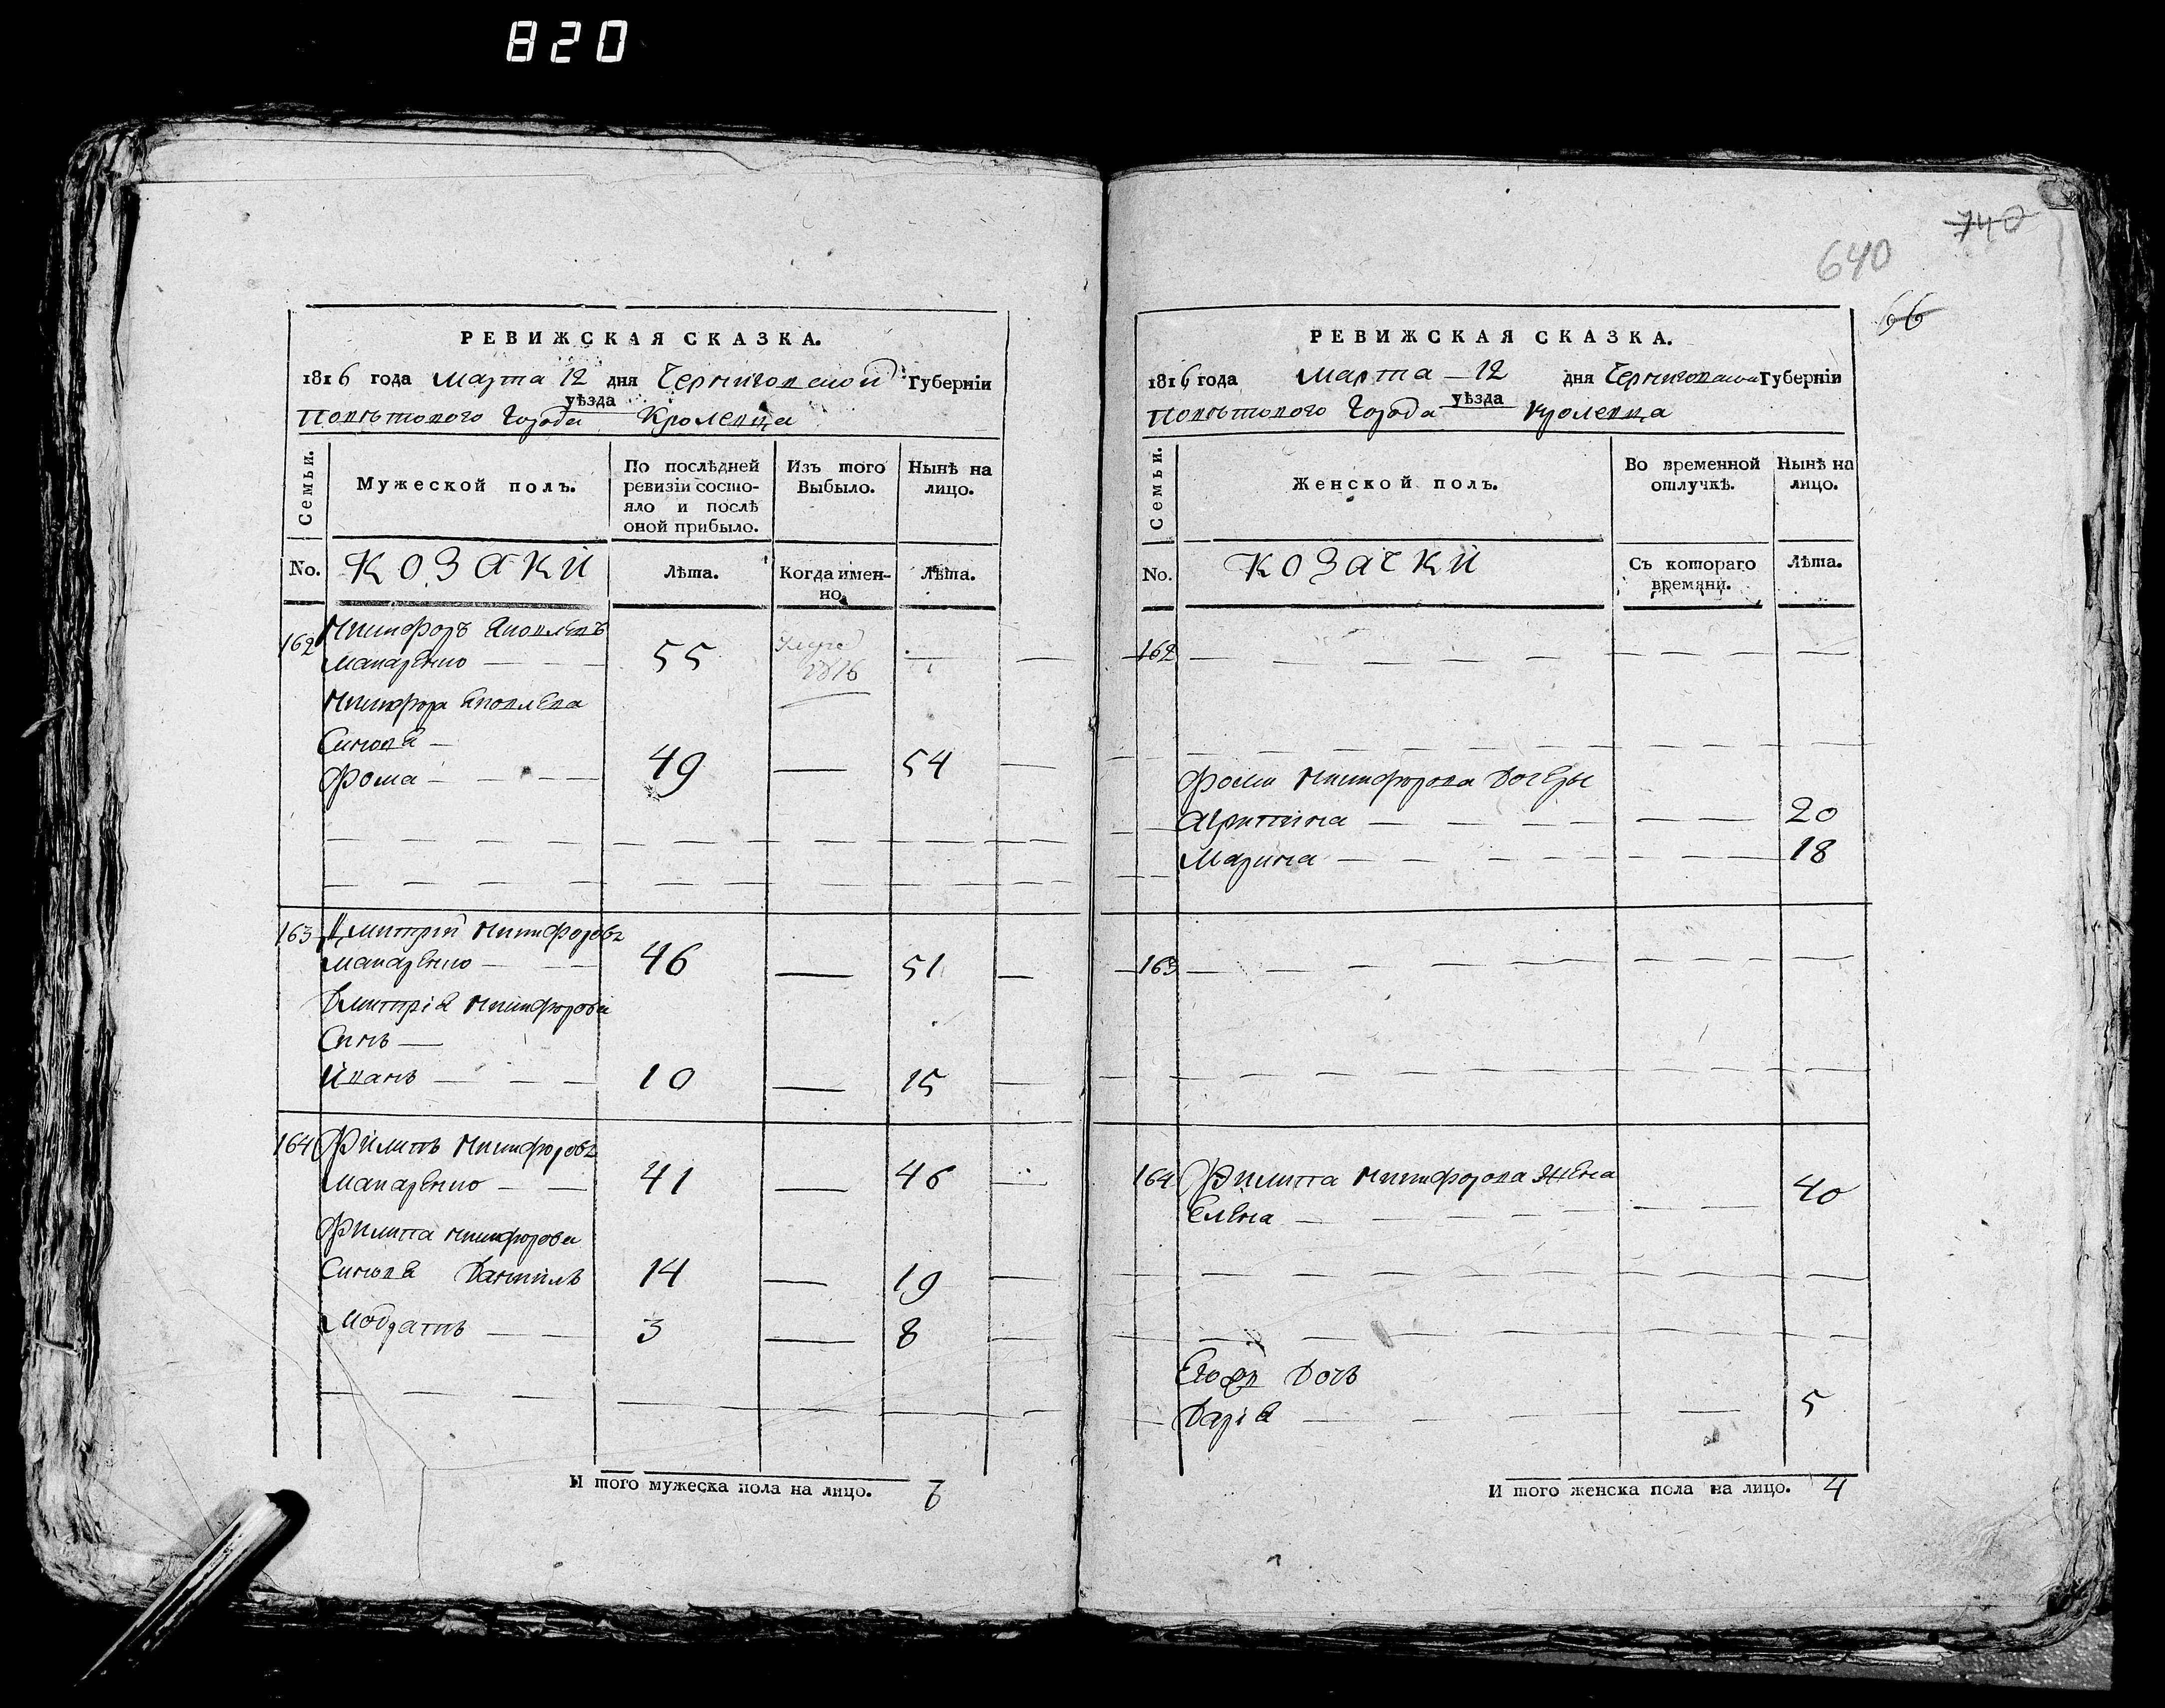 820
740
640
66
РЕВИЖСКАЯ СКАЗКА.
1816 года Марта 12 дня Черниговской Губерніи
уѣзда
Повѣтового Города Кролевца
Семьи.
Мужеской полъ.
По послѣдней ревизіи состояло и послѣ оной прибыло.
Изъ того Выбыло.
Нынѣ на лицо.
No. Козаки
Лѣта.
Когда именно.
Лѣта.
162 Никифоръ Яковлевъ
Макаренко 55 1816
Никифора Яковлева
Синовя
Фома 49 54
163 Дмитрій Никифоровъ
Макаренко 46 51
Дмитрія Никифорова
Синъ
Иванъ 10 15
164 Филипъ Никифоровъ
Макаренко 41 46
Филипа Никифорова
Синовя Даниилъ 14 19
3 8
И того мужеска пола на лицо. 6
РЕВИЖСКАЯ СКАЗКА.
1816 года Марта 12 дня Черниговской Губерніи
уѣзда
Повѣтового Города Кролевца
Семьи.
Женской полъ.
Во временной отлучкѣ.
Нынѣ на лицо.
No. Козачки
Съ котораго времяни.
Лѣта.
162
Фоми Никифорова Дочеры
Агрипина 20
Марина 18
163
164 Филипа Никифорова Жена
Елена 40
Дочь
Дарія 5
И того женска пола на лицо. 4